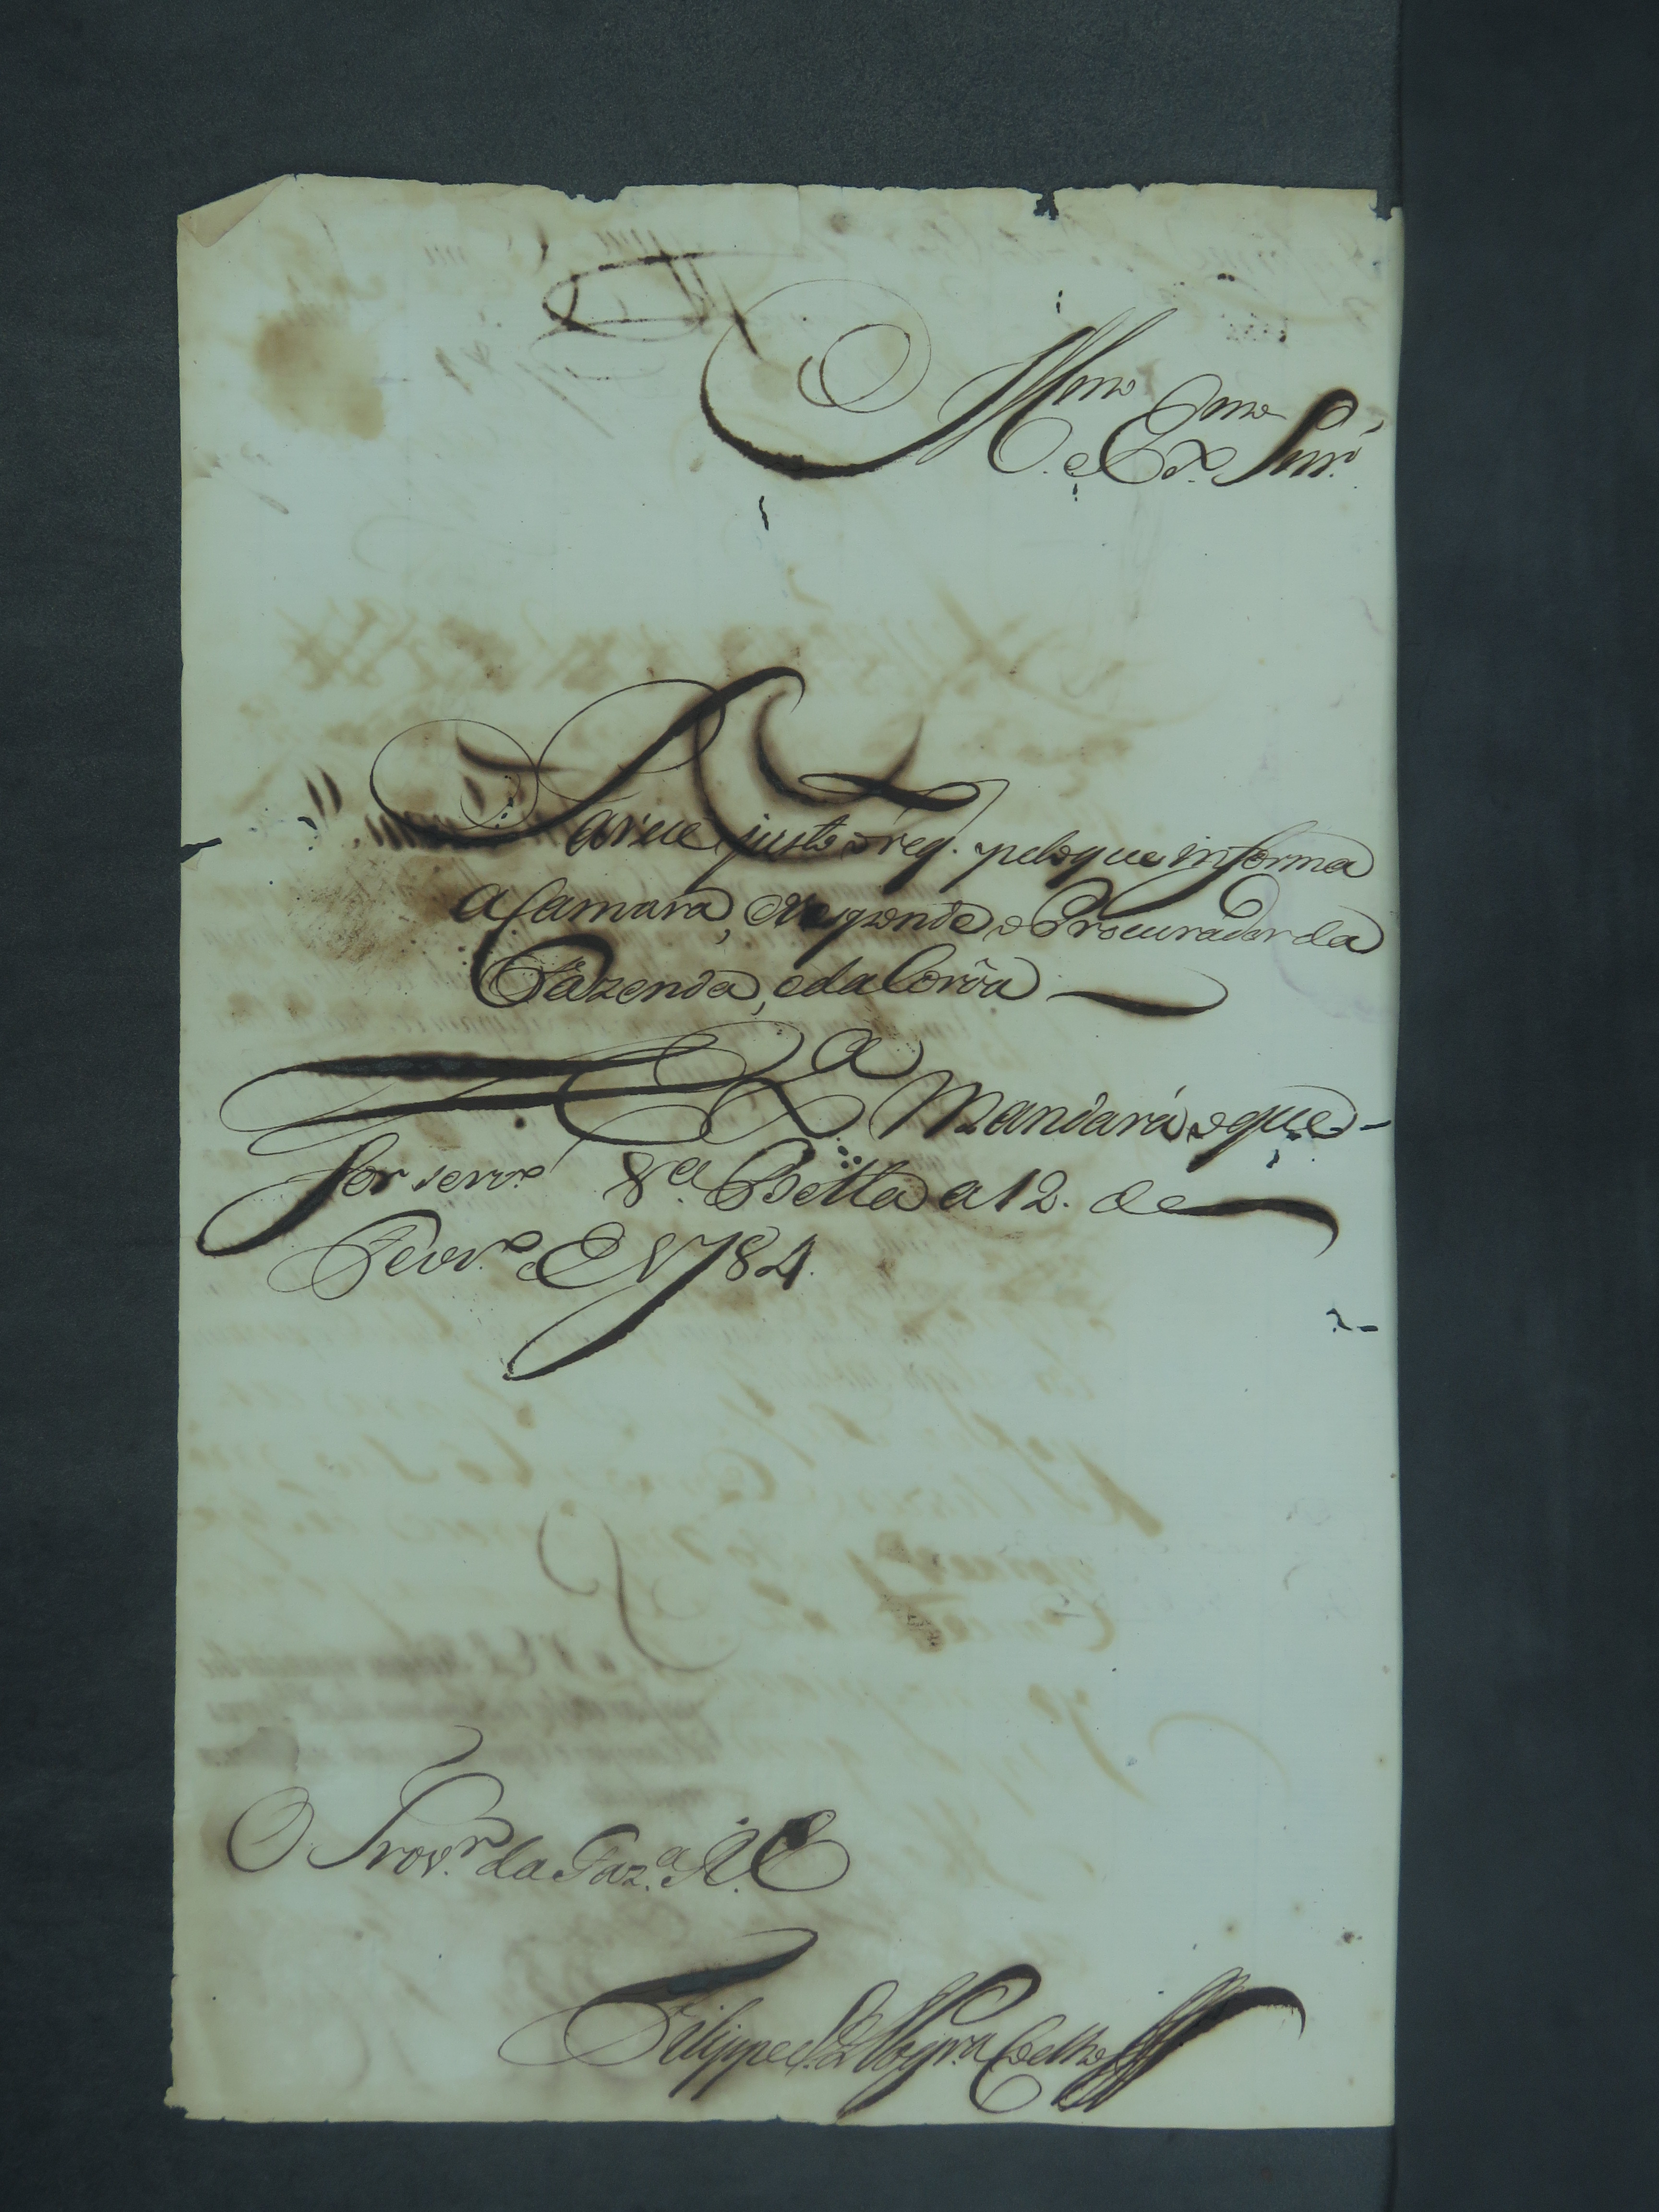 Illmo
e Exmo Snr.
Parece justo o req. pelo que informa
a Camara, e responde o Procurador da
Fazenda, e da Coroa
V Exa Mandará o que
for servo Va Bella a 12. de
Fevro. de 1784.
O Provor. da Faza. R.
Filippe Joze Nogra. Coelho